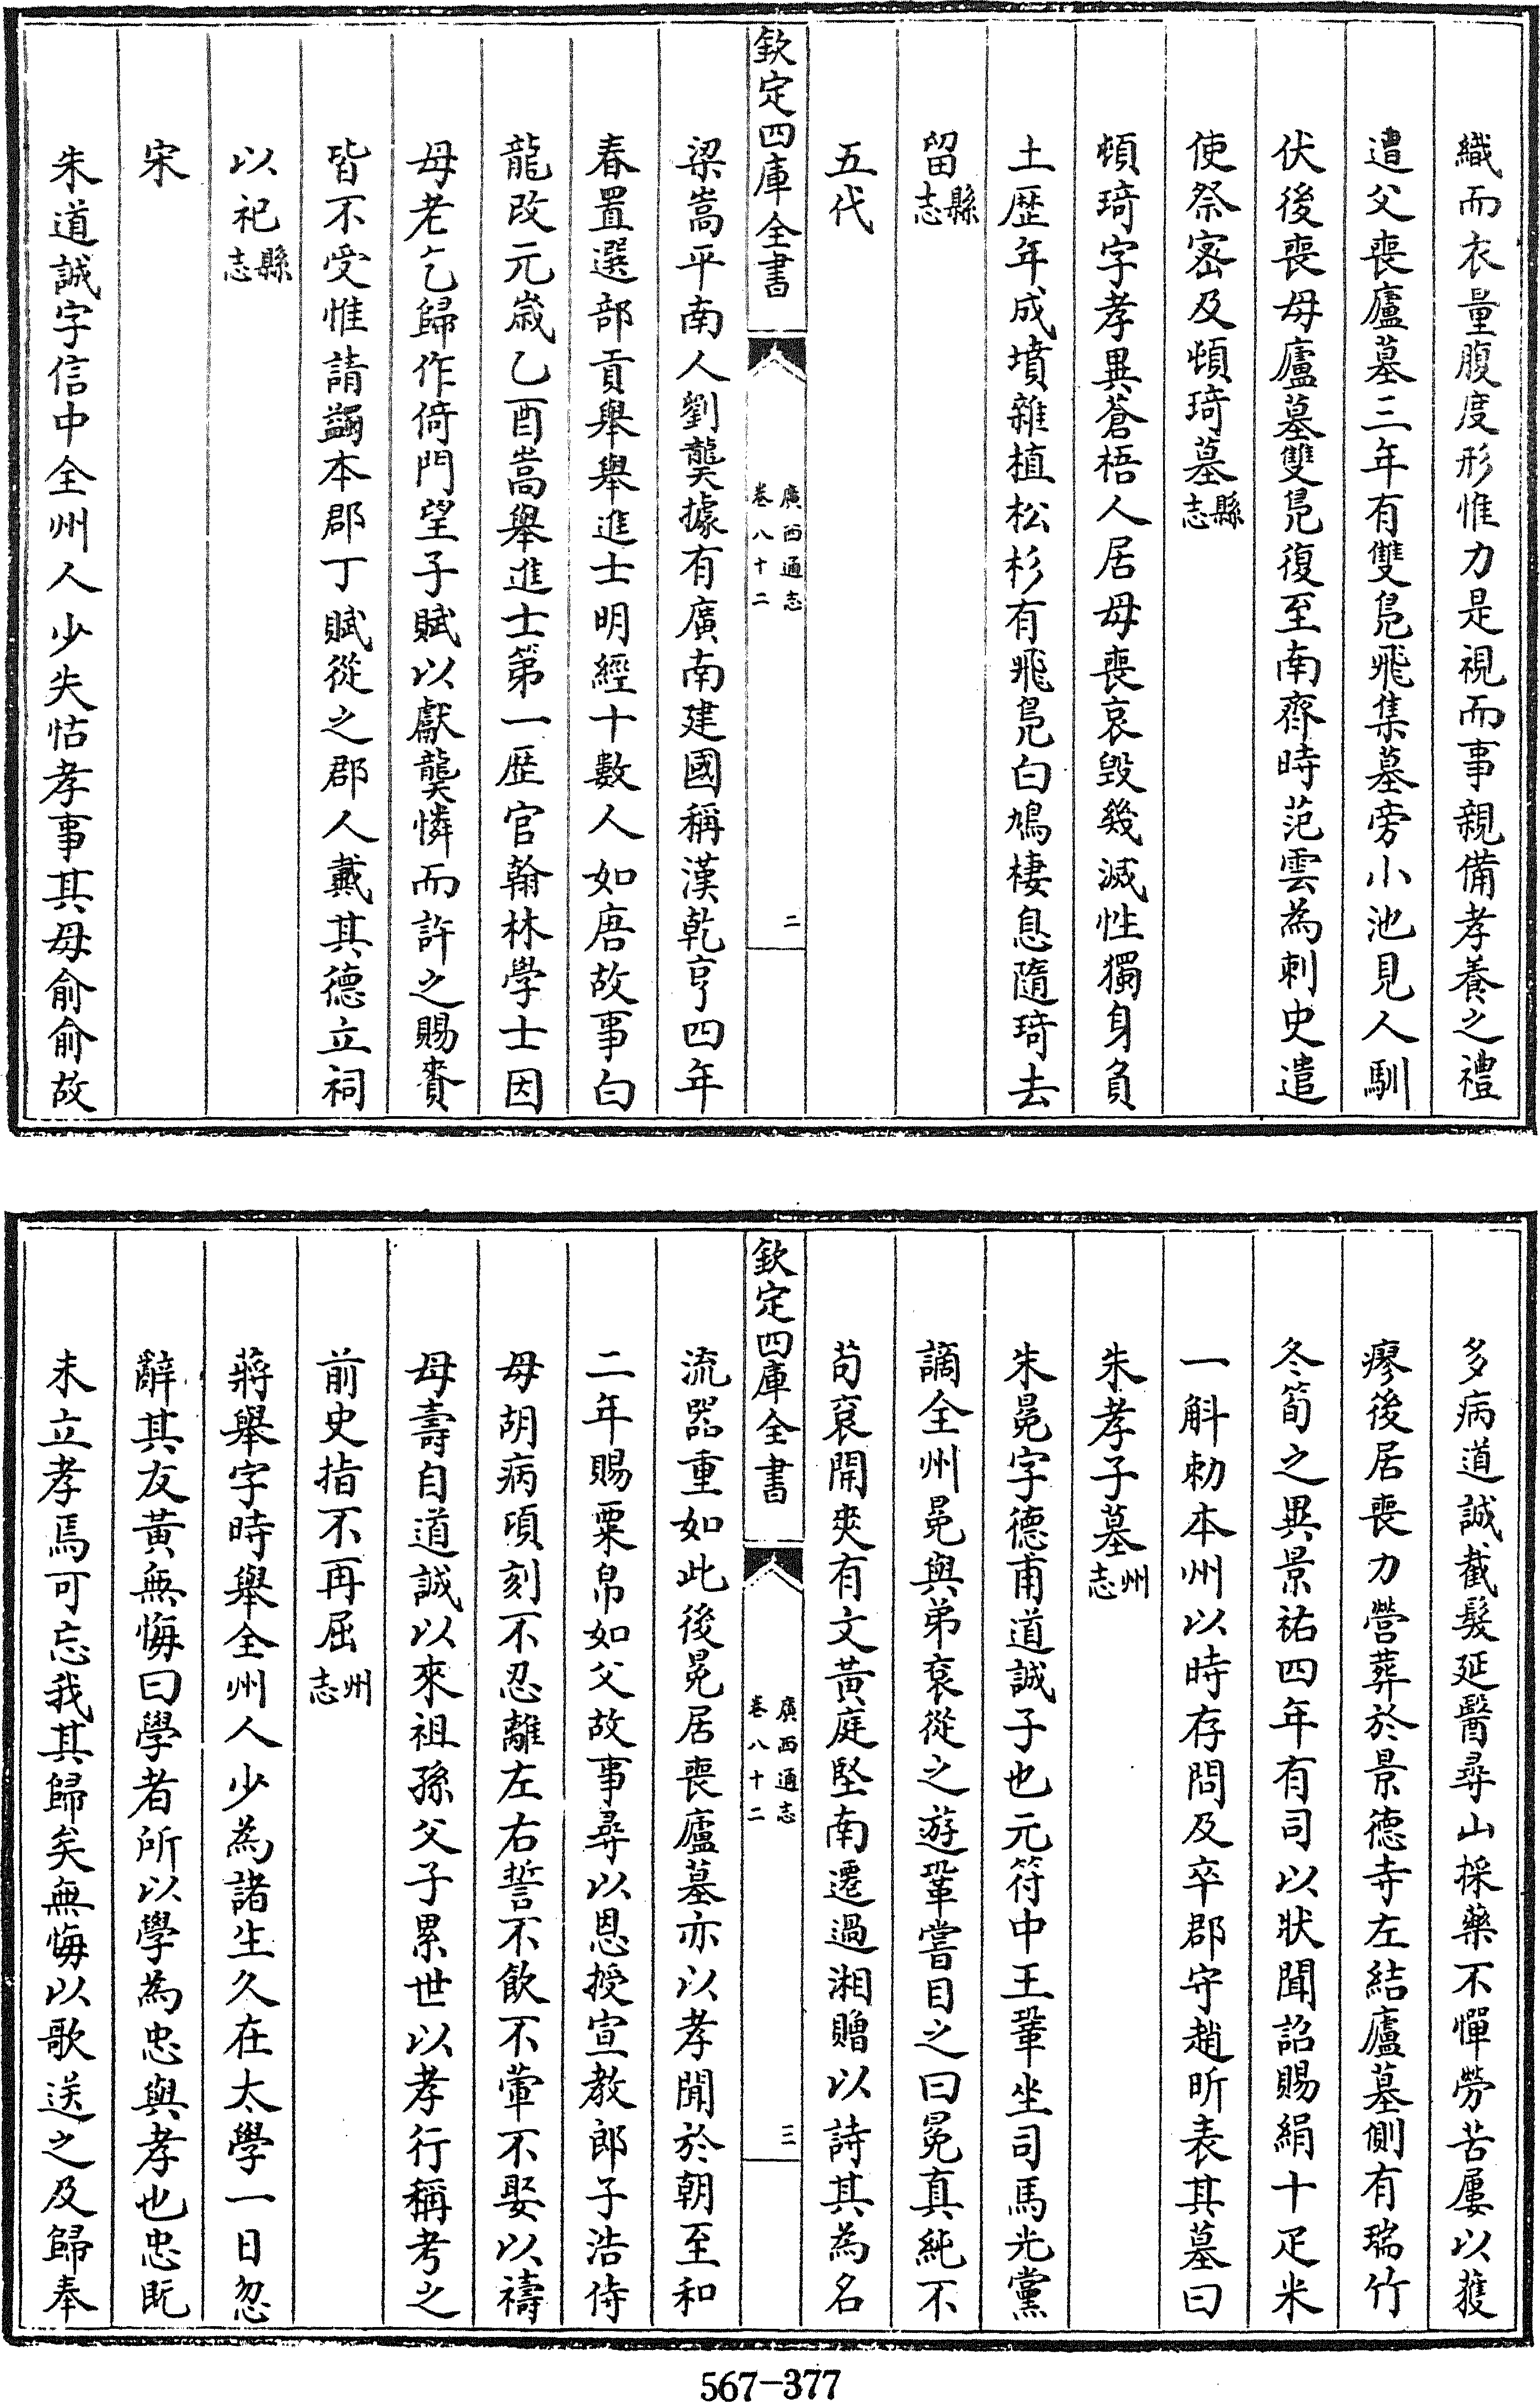 織而衣量腹度形惟力是視而事親備孝養之禮
遭父喪廬墓三年有雙鳧飛集墓旁小池見人馴
伏後喪母廬墓雙鳧復至南齊時范雲為刺史遣
使祭宻及頓琦墓縣志
頓琦字孝異蒼梧人居母喪哀毀幾滅性獨身負
土歴年成墳雜植松杉有飛鳧白鳩棲息隨琦去
留縣志
五代
欽定四庫全書
廣西通志
卷八十二
二
梁嵩平南人劉龑據有廣南建國稱漢乾亨四年
春置選部貢舉舉進士明經十數人如唐故事白
龍改元嵗乙酉嵩舉進士第一歴官翰林學士因
母老乞歸作倚門望子賦以獻龑憐而許之賜賚
皆不受惟請蠲本郡丁賦從之郡人戴其德立祠
以祀縣志
宋
朱道誠字信中全州人少失怙孝事其母俞俞故
多病道誠截髮延醫尋山採藥不憚勞苦屢以獲
瘳後居喪力營葬於景德寺左結廬墓側有瑞竹
冬筍之異景祐四年有司以狀聞詔賜絹十疋米
一斛勅本州以時存問及卒郡守趙昕表其墓曰
朱孝子墓州志
朱冕字德甫道誠子也元符中王鞏坐司馬光黨
謫全州冕與弟袞從之遊鞏嘗目之曰冕真純不
苟袞開爽有文黃庭堅南遷過湘贈以詩其為名
欽定四庫全書
廣西通志
卷八十二
三
流噐重如此後冕居喪廬墓亦以孝聞於朝至和
二年賜粟帛如父故事尋以恩授宣教郎子浩侍
母胡病項刻不忍離左右誓不飲不葷不娶以禱
母壽自道誠以來祖孫父子累世以孝行稱考之
前史指不再屈州志
蔣舉字時舉全州人少為諸生久在太學一日忽
辭其友黃無悔曰學者所以學為忠與孝也忠旣
未立孝焉可忘我其歸矣無悔以歌送之及歸奉
567-377